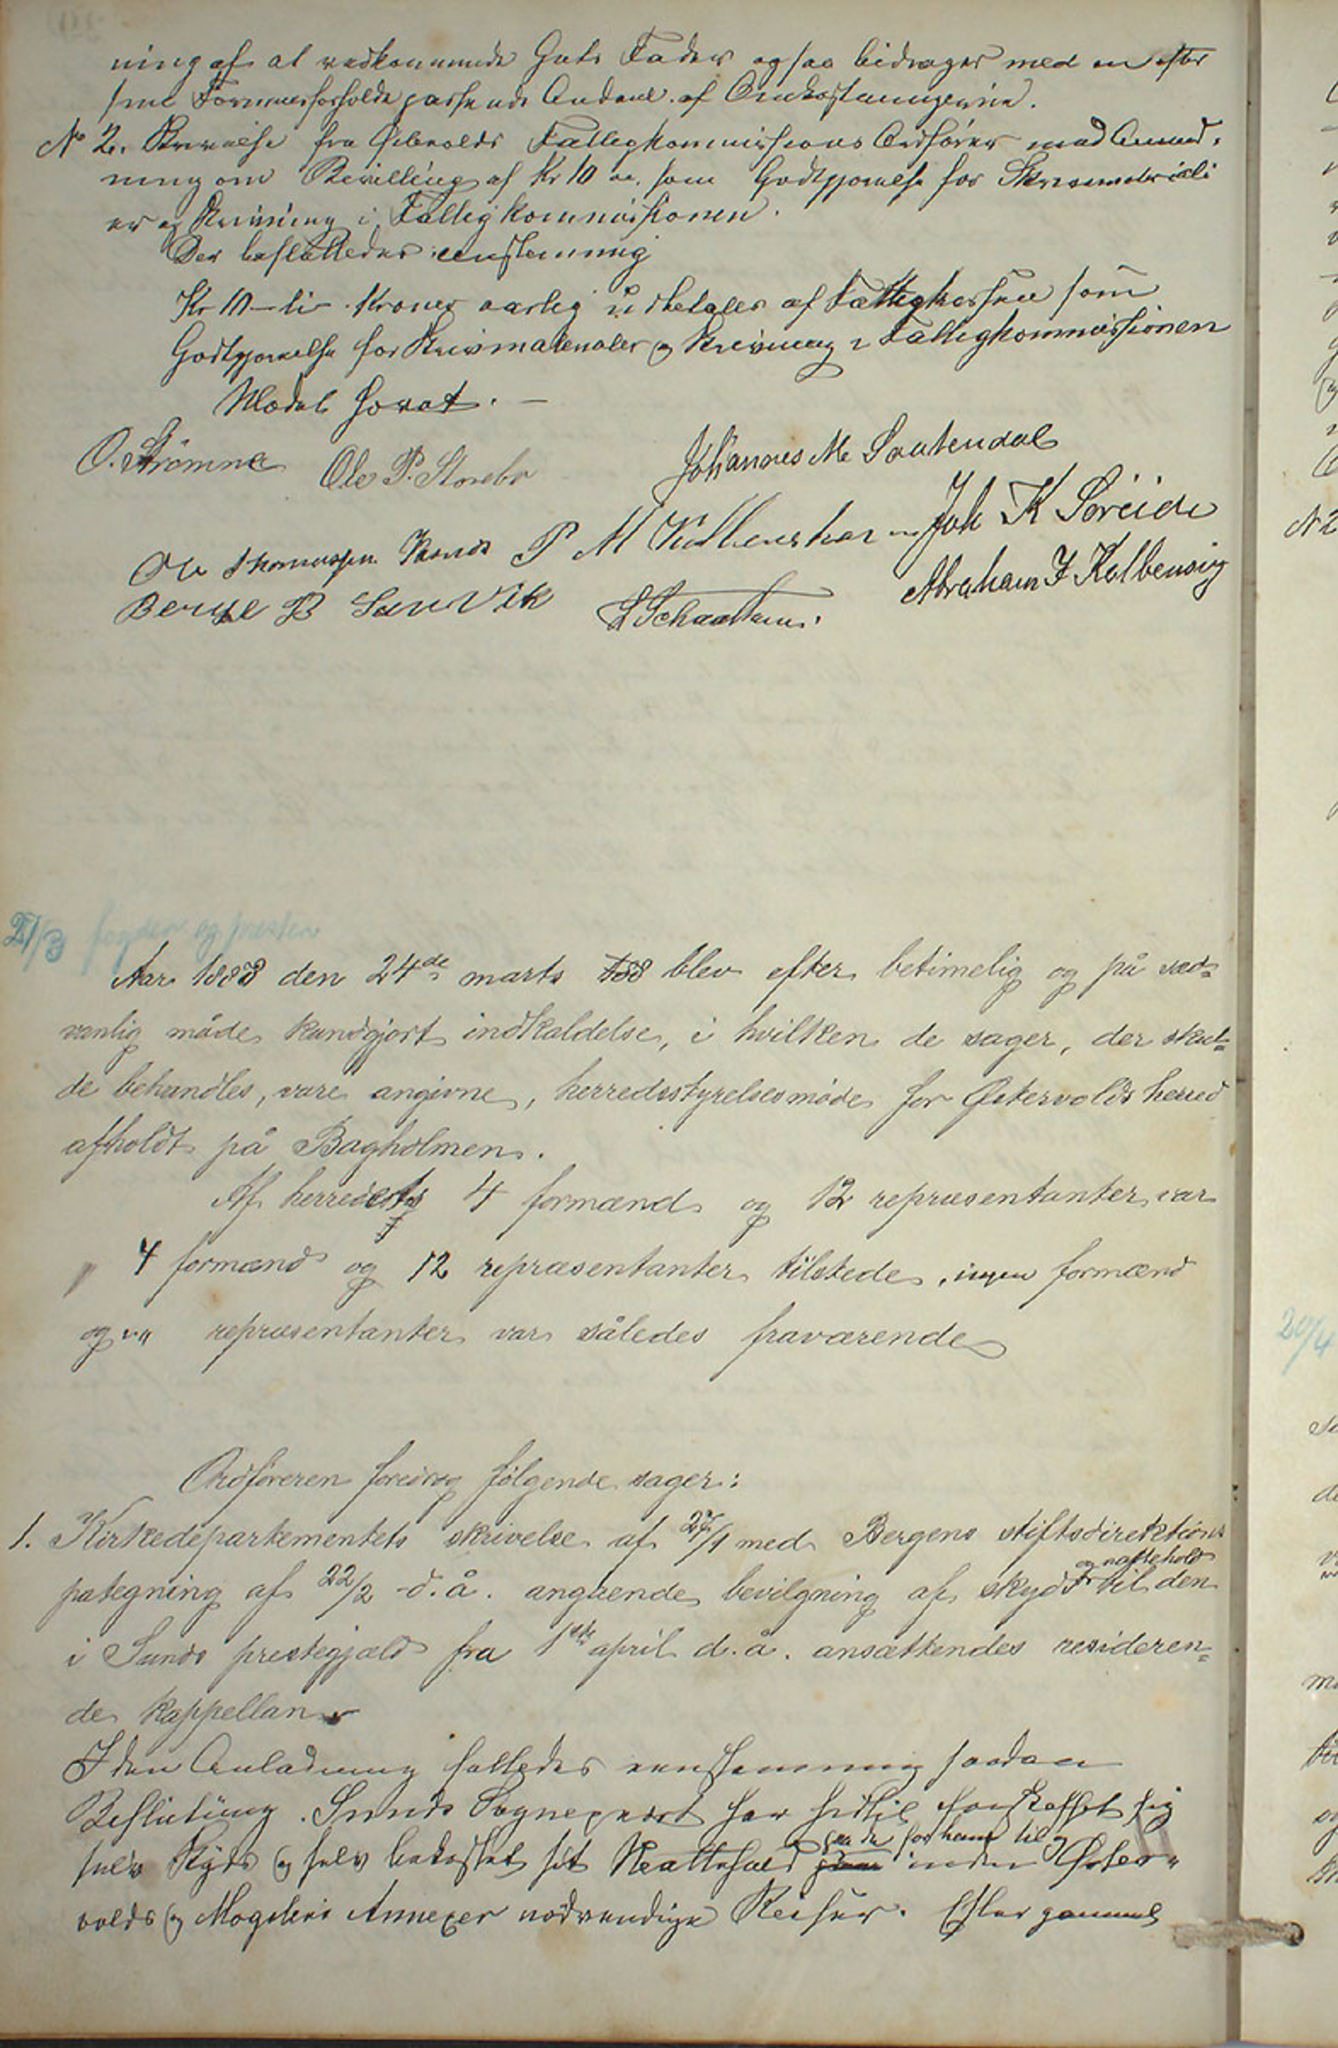 ning af at vedkommende Guts Fader ogsaa bidrager med en efter
sine Formuesforholde passende Andeel af Omkostningerne.
No 2. Skrivelse fra Østervolds Fattigkommissions Ordfører med Anmod-
ning om Bevilling af Kr 10 som Godtgjørelse for Skrivmateriali
er og Skrivning i Fattigkommissionen.
Der besluttedes eenstemmig
Kr 10 – ti – Kroner aarlig udbetales af Fattigkassen som
Godtgjørelse for Skrivmaterialer og Skrivning i Fattigkommissionen
Mødet hævet. –
O. Strømme Ole P. Storebø Johannes M. Sautendal
Ole Thomassen P M Kolbenshavn Joh K Søreide
Berge B Sanvik Abraham I Kolbensvig
21/3 fogden og presten
Aar 1883 den 24de marts 188 blev efter betimelig og på sæd-
vanlig måde kundgjort indkaldelse, i hvilken de sager, der skul-
de behandles, vare angivne, herredsstyrelsesmøde for Østervolds herred
afholdt på Bagholmen.
Af herredets 4 formænd og 12 repræsentanter var
4 formænd og 12 repræsentanter tilstede, ingen formænd
og " repræsentanter var således fraværende
Ordføreren foredrog følgende sager:
1. Kirkedepartementets skrivelse af 27/1 med Bergens stiftsdirektions
og nattehold
påtegning af 22/2 d.å. angående bevilgning af skyds til den
i Sunds prestegjæld fra 1ste april d.å. ansættendes resideren-
de kappellan
I den Anledning fattedes eenstemmig saadan
Beslutning. Sunds Sogneprest har hidtil forskaffet sig
for ham til
selv Skyds og selv bekostet sit Nattehold inden Øster-
volds og Møgsters Annexer nødvendige Reiser. Efter gammel